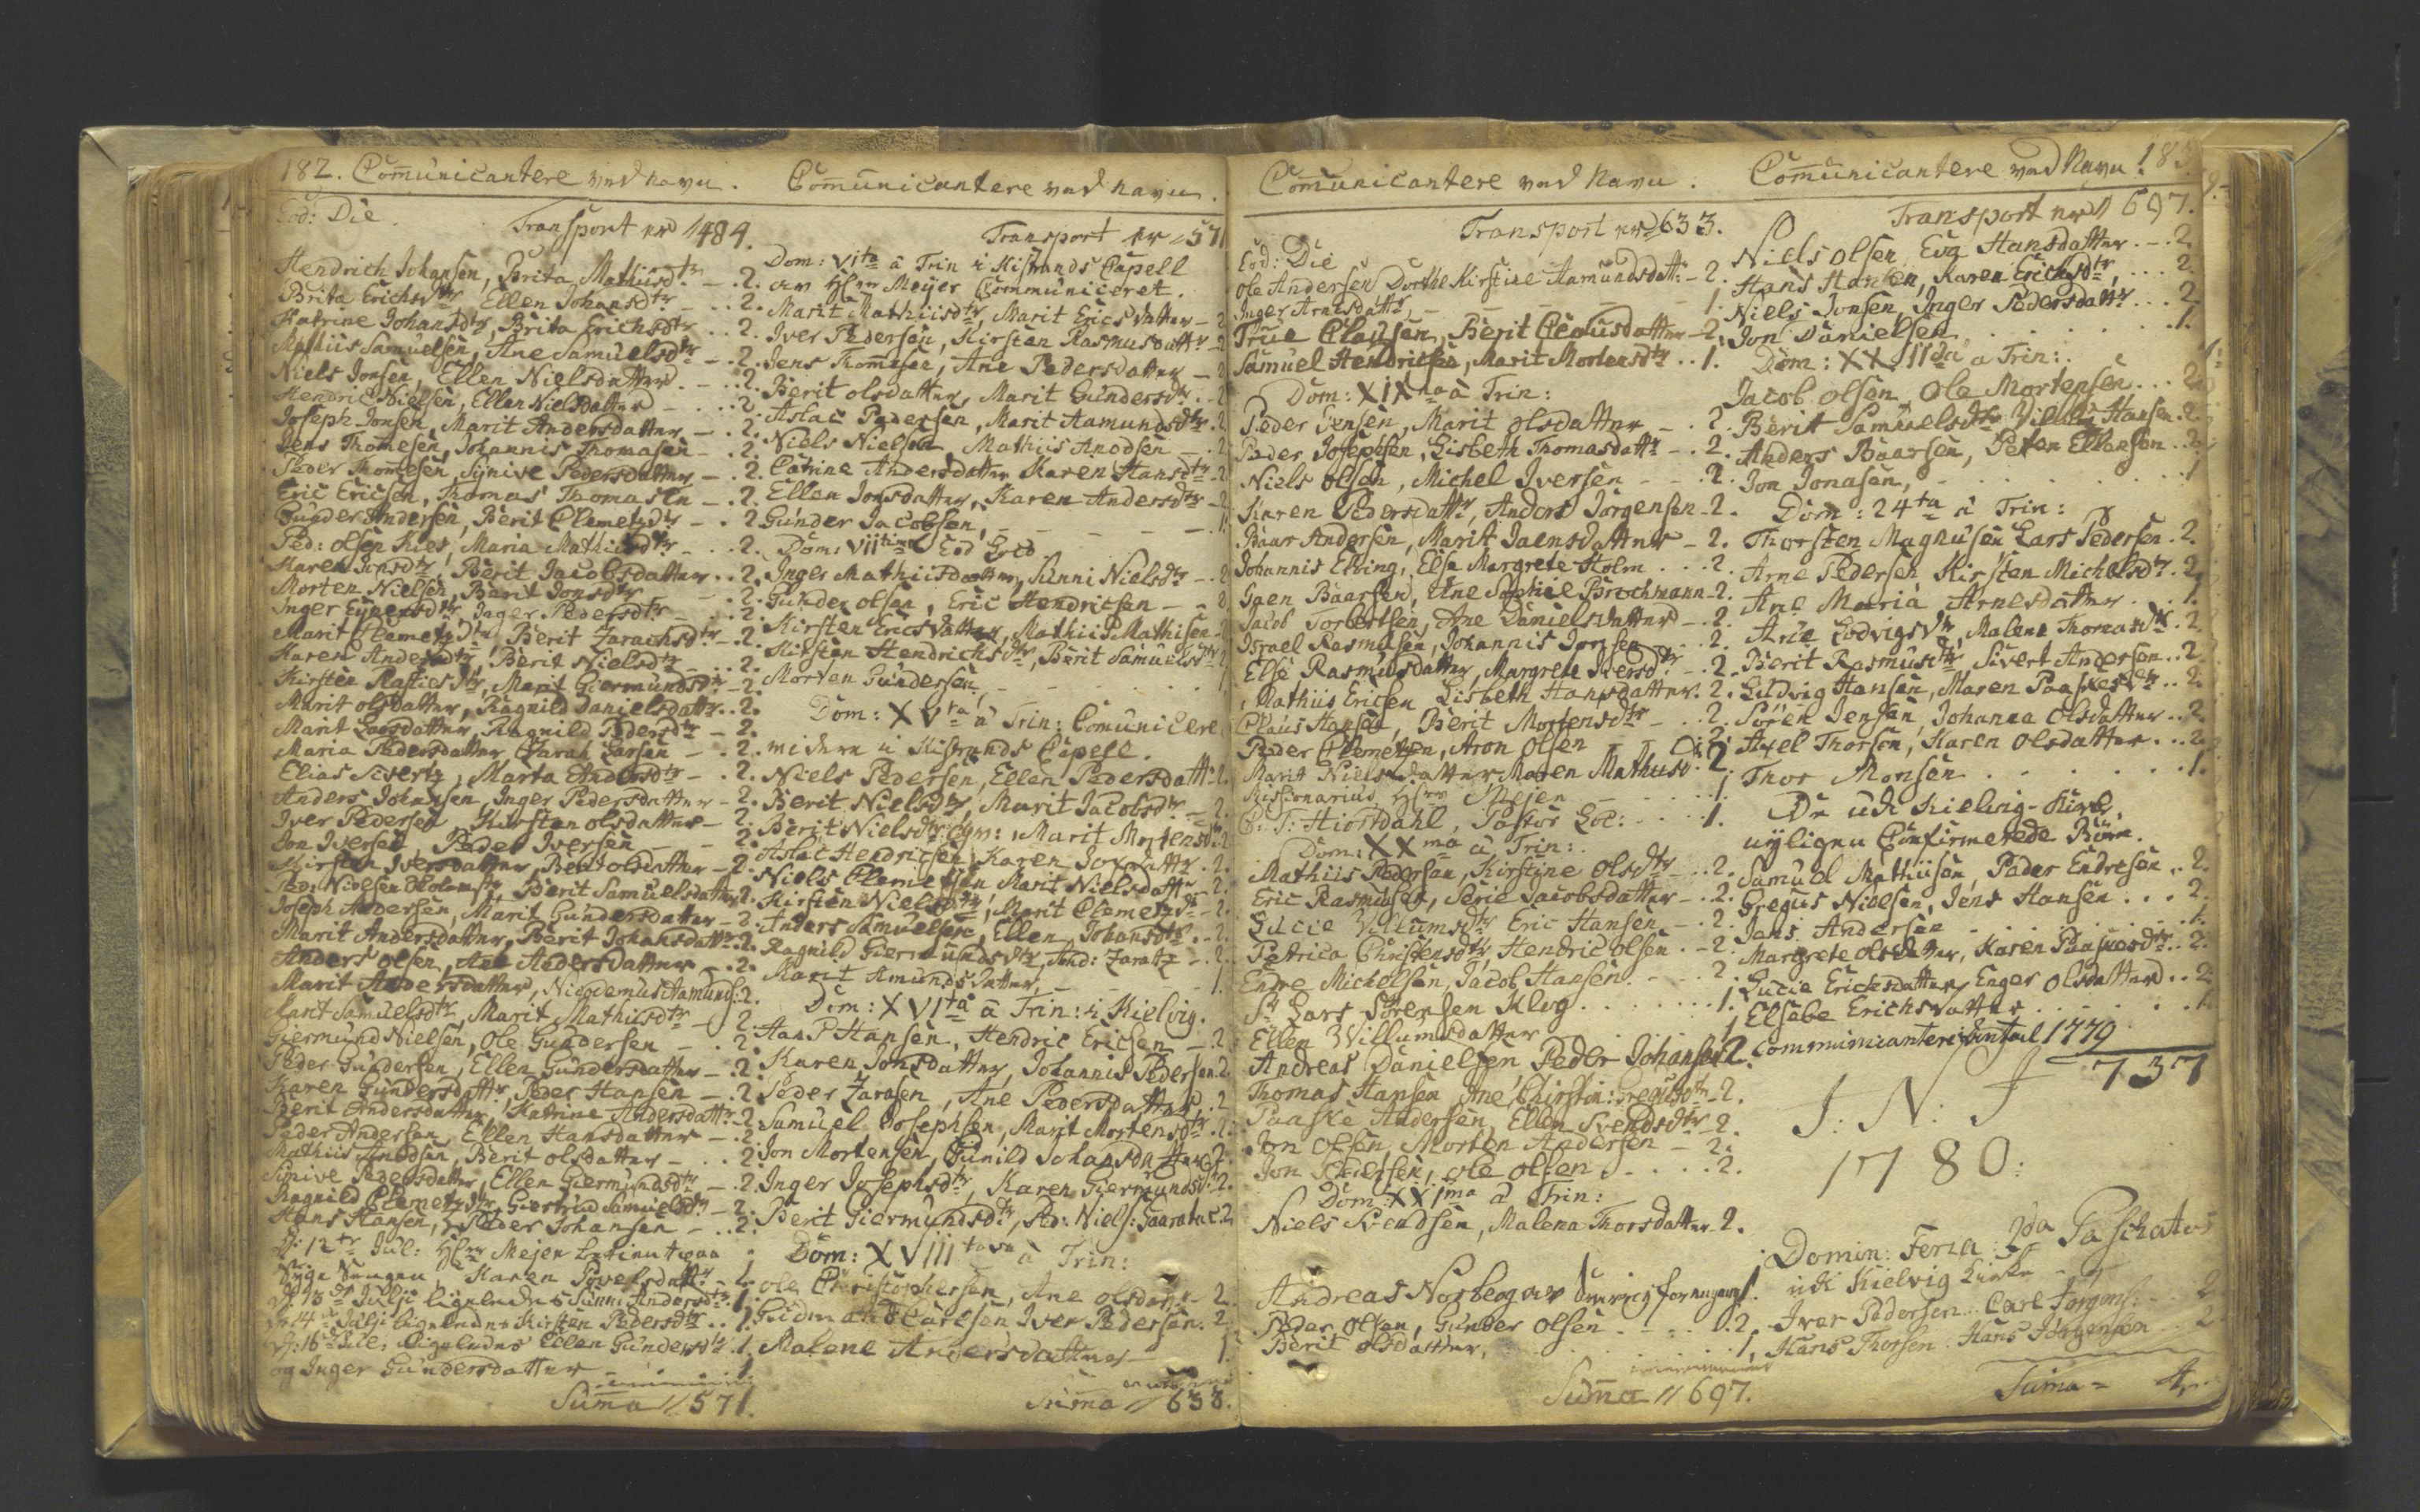 182. Com̄unicantere ved navn.
Eod: Die
Transport er 484.
Hendrich Johansen, Brita Mathiisdtr - . 2.
Brita Erichsdtr Ellen Johansdtr . . 2.
Katrine Johansdtr, Brita Erichsdtr . . 2.
Mathiis Samuelsen, Ane Samuelsdtr - . 2.
Niels Jonsen, Ellen Nielsdatter . - . 2.
Hendric Nielsen, Ellen Nielsdatter - . 2.
Joseph Jonsen, Marit Andersdatter - . 2.
Jens Thomesen, Johannis Thomasen - . 2.
Peder Thomesen, Synive Pedersdatter - . 2.
Eric Ericsen, Thomas Thomasen - . 2.
Gunder Andersen, Berit Clemetsdtr - . 2
Ped: Olsen Kies, Maria Mathiisdtr - . 2.
Karen Jonsdtr, Berit Jacobsdatter . . 2.
Morten Nielsen, Barit Jonsdtr - . 2.
Inger Pedersdtr . 2.
Marit Clemetsdtr, Berit Zarachsdtr - 2.
Karen Andersdtr, Berit Nielsdtr - . . 2.
Kirsten Marit Giermundsdtr - 2.
Marit olsdatter, Ragnild Danielsdatter . . 2.
Marit Larsdatter, Ragnild Pedersdtr - 2.
Maria Pedersdatter Zarah Larsen - . 2.
Elias Siverts, Marta Andersdtr - . 2.
Anders Johansen, Inger Pedersdatter - 2.
Iver Pedersen, Kirsten olsdatter - 2.
Jon Iversen, Peder Iversen - 2.
Kirsten Iversdatter, Berit olsdatter - 2.
Ped: Nielsen Berit Samuelsdatter 2.
Joseph Andersen, Marit Gundersdatter - 2.
Marit Andersdatter, Berit Johansdattr 2.
Anders Olsen, Ane Andersdatter - . 2.
Marit Andersdatter, Nicodemus Aamunds: 2.
Marit Samuelsdtr, Marit Mathiisdtr - 2.
Giermund Nielsen, Ole Gundersen - . 2.
Peder Gundersen, Ellen Gundersdatter - . 2.
Karen Gundersdattr, Peder Hansen - . 2.
Berit Andersdatter, Katrine Andersdattr - 2.
Peder Andersen, Ellen Hansdatter - . 2.
Mathiis Anodsen, Berit olsdatter - . . 2.
Sinive Pedersdatter, Ellen Giermundsdtr - . 2.
Ragnild Clemetsdtr, Giertrud Samuelsdtr - 2.
Hans Hansen, Peder Johansen - . . 2.
d: 12te Jul: Hr Mejer
Syge Karen Povelsdattr - 1.
d: 13de Julji ligeledes Sünni Andersdtr . 1.
d: 14de Julji ligeledes Kirsten Pedersdtr . . 1.
d: 16de Jul: ligeledes Ellen Gundersdtr . 1.
og Inger Gundersdatter - . . . 1
Suma 571.
Com̄unicantere ved navn.
Transport er 571
Dom: VIta à Trin i Kistrands Capell
av Hr Meyer Communiceret.
Marit Mathiisdtr, Marit Erics datter - 2
Iver Pedersen, Kirsten Rasmusdattr - 2
Jens Thomesen, Ane Pedersdatter - 2
Berit olsdatter, Marit Gundersdtr . 2
Aslac Pedersen, Marit Aamundsdtr . 2
Niels Nielsen, Mathiis Anodsen - . 2
Catrine Andersdatter Karen Hansdtr - 2
Ellen Jonsdatter, Karen Andersdtr - 2
Gunder Jacobsen, - - - - 1.
Dom: VIItima Eod Loco
Inger Mathiisdatter, Sünni Nielsdtr - . 2
Gunder olsen, Eric Hendricsen - - 2
Kirsten Erics datter, Mathiis Mathisen - 2
Kirsten Hendrichsdtr, Berit Samuelsdtr 2
Morten Gundersen, - - - 1.
Dom: XVta à Trin: Comunicere
i Kistrands Capell.
Niels Pedersen, Ellen Pedersdattr . 2.
Berit Nielsdtr, Marit Jacobsdtr - 2.
Berit Nielsdtr Marit Mortensdtr . 2
Aslac Hendricsen Karen Jonsdatter . 2.
Niels Clemetsen Marit Nielsdattr - 2.
Kirsten Nielsdtr, Marit Clemetsdtr - 2.
Anders Samuelsen, Ellen Johansdtr . - 2.
Ragnild Giermundsdtr, Joh: Zarah - . 2.
Marit Amunds datter, - - - 1.
Dom: XVIta à Trin: i Kielvig.
Hans Hansen, Hendric Ericsen - . 2
Karen Jonsdatter, Johannis Pedersen . 2
Peder Zarasen, Ane Pedersdatter . 2
Samuel Josephsen, Marit Mortensdtr . 2.
Jon Mortensen, Gunild Johansdatter 2.
Inger Josephsdtr, Karen Giermundsdtr 2.
Berit Giermundsdtr, Ped: Niels: 2
Dom: XVIII tava à Trin:
ole Christophersen, Ane olsdatr - 2.
Gudmand Carlsen Iver Pedersen . 2.
Malene Andersdatter - 1.
Suma 633.
Com̄unicantere ved Navn.
Transport er 633.
Eod: Die
Ole Andersen Dorthe Kirstine Aamundsdattr - 2.
Inger Arnesdattr, - - - 1.
True Clausen, Berit Clausdatter - 2.
Samuel Hendricsen, Marit Mortensdtr . . 1.
Dom: XIX na à Trin:
Peder Jensen, Marit olsdatter - . 2.
Peder Josephsen, Lisbeth Thomasdattr - . 2.
Niels olsen, Michel Iversen - - . 2.
Karen Pedersdattr, Anders Jørgensen - 2.
Baar Andersen, Marit Jaensdatter - 2.
Johannis Ebbing, Else Margrete Holm . . . 2.
Jaen Baarsen, Ane Sophie Brochmann - 2.
Jacob Torbertsen, Ane Danielsdatter - . 2.
Israel Rasmusen, Johannis Jonsen - . . 2.
Else Rasmusdatter, Margrete Iversdtr - . 2.
Mathiis Ericsen Lisbeth Hansdatter . 2.
Claus Hansen, Berit Mortensdtr - . . 2.
Peder Clemetsen, Aron Olsen - - 2.
Marit Niels datter Maren Mathiisd: 2
Missionarius Hr Mejer - - - 1.
C: T: Hiortdahl, Pastor Loc: . . . 1.
Dom: XXma à Trin:
Mathiis Pedersen, Kirstine Olsdtr - . . 2.
Eric Rasmusen, Serie Jacobsdatter - . 2.
Lucie Villumsdtr Eric Hansen - . 2.
Petrica Christensdtr, Hendric Olsen . . 2
Endre Michelsen, Jacob Hansen . - . 2.
Sr Lars Sørensen Klog . . . . . 1.
Ellen Willumsdatter . . . . 1.
Andreas Danielsen Peder Johansen 2.
Thomas Hansen Ane Chirstin: Gregusdtr - 2.
Paaske Andersen, Ellen Svendsdtr - 2.
Jon Olsen, Morten Andersen - 2.
Jon ole olsen . - . . . 2.
Dom: XXIma à Trin:
Niels Svendsen, Malena Thorsdatter 2.
Andreas 1.
Peder Olsen, Gunder Olsen . - . . . 2.
Berit olsdatter, . . . . 1.
Suma 697.
Com̄unicantere ved Navn. 183
Transport er 697.
Niels olsen, Eva Hansdatter . - . 2.
Hans Hansen, Karen Erichsdtr, . . . 2.
Niels Jonsen, Inger Pedersdattr . . . 2.
Jon Danielsen . . . . . . 1.
Dom: XXIIda a Trin:
Jacob olsen, Ole Mortensen . . . 2.
Berit Samuelsdtr Villum Hansen . 2.
Anders Baarsen, Peter Ellensen . . 2
Jon Jonasen, - . . . . . . 1
Dom: 24ta à Trin:
Thorsten Magnusen Lars Pedersen . 2.
Arne Pedersen Kirsten Michelsdtr . 2.
Ane Maria Arnesdatter . . 1.
Ane Lodvigsdtr, Malene Thomasdtr . 2.
Berit Rasmusdtr Sivert Andersen . . 2.
Ludvig Hansen, Maren Paaskesdtr . . 2.
Søren Jensen, Johanna Olsdatter . . 2.
Axel Thorsen, Karen Olsdatter . . . 2.
Thor Monsen . . . . . 1.
De udi Kielvig-Kirke,
nÿligen Confirmerede Børn.
Samuel Mathiisen, Peder Endresen . . 2.
Gregus Nielsen, Jens Hansen . . . 2.
Jens Andersen - . . . . . 1.
Margrete olsdatter, Karen Paaskesdtr . . 2.
Lucie Ericksdatter, Enger Olsdatter . . 2.
Elsebe Erichsdatter . . . . . 1.
Communicantere Antal 1779 737
J: N: J
1780:
Domin: Feria 2da Paschatos
udi Kielvig Kirke -
Ivar Pedersen . . Carl Jørgens: - 2
Hans Thorsen . Hans Jørgensen . . 2
Suma = 4.